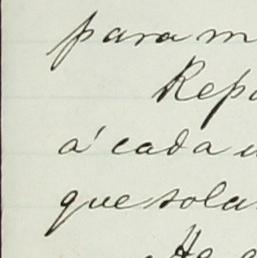 para m
Repu
á cada u
que sola
He